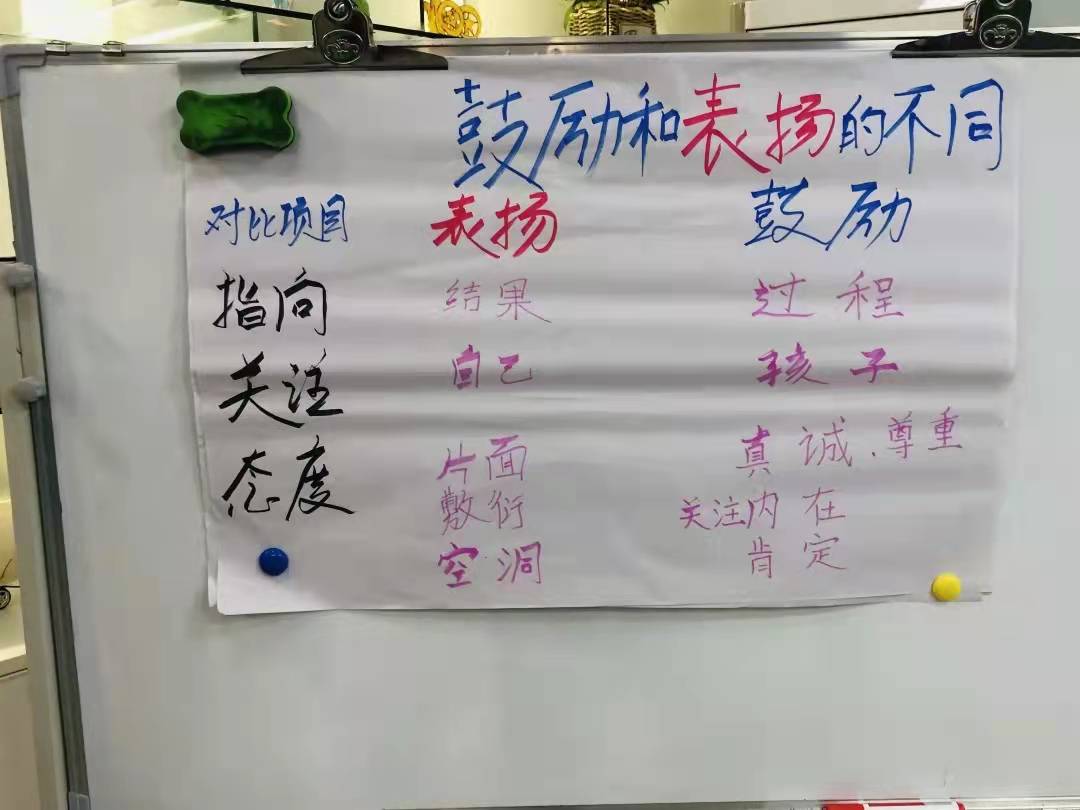 鼓励和表扬的不同
对比项目 表扬 鼓励
指向 结果 过程
关注 自己 孩子
态度 片面 真诚.尊重
敷衍 关注内在
空洞 肯定